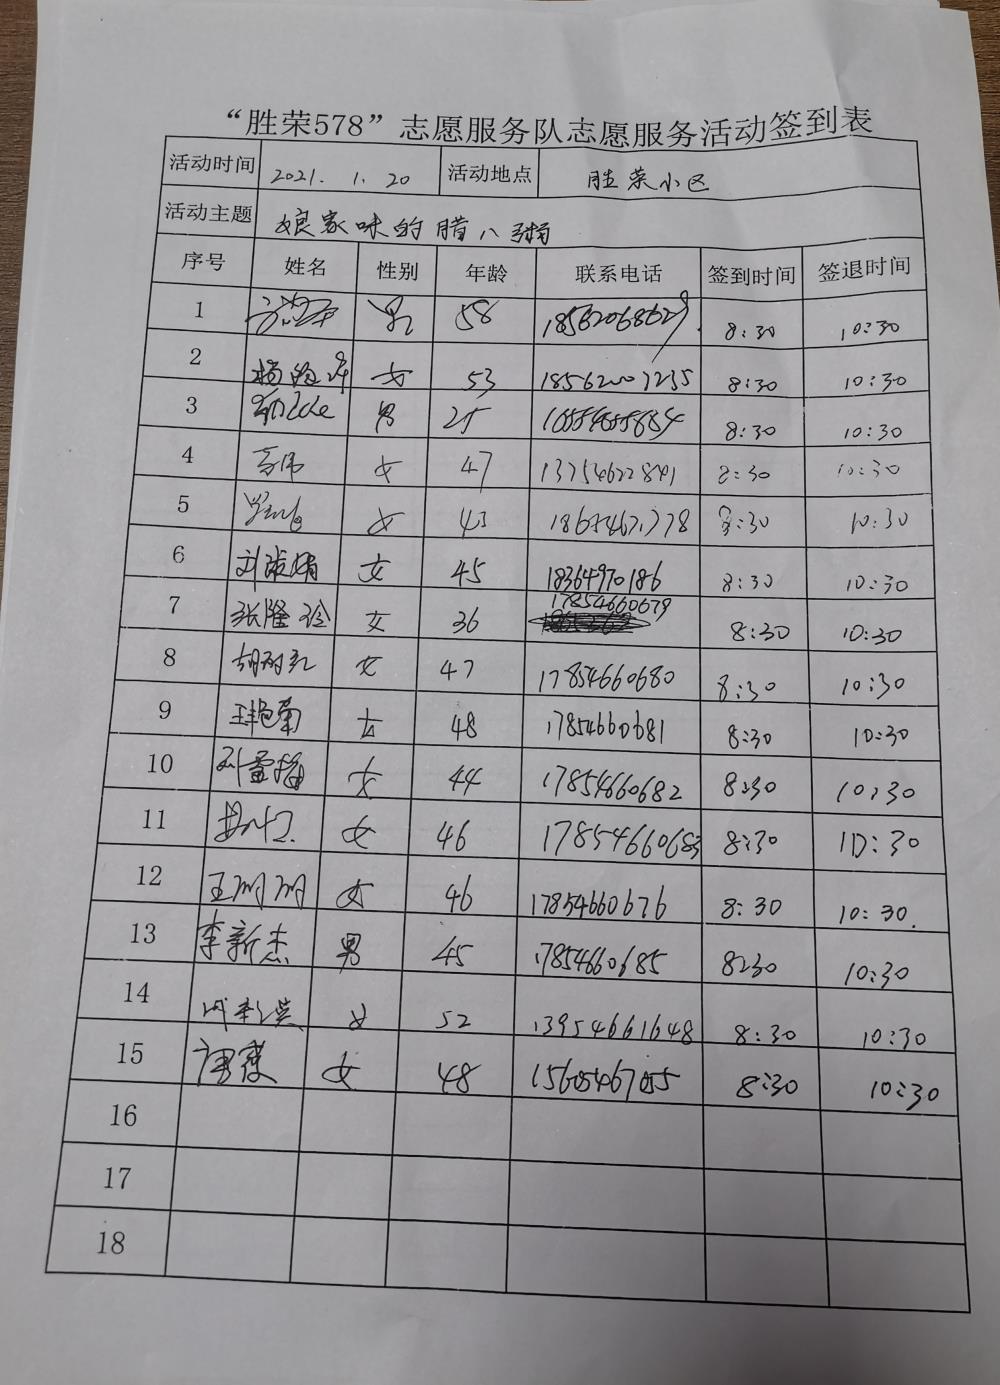 “胜荣578”志愿服务队志愿服务活动签到表
活动时间 2021. 1. 20 活动地点 胜荣小区
活动主题 娘家味的腊八粥
序号 姓名 性别 年龄 联系电话 签到时间 签退时间
1 男 58 18562068629 8:30 10:30
2 女 53 8:30 10:30
3 男 25 8:30 10:30
4 女 47 13754622841 8:30 10:30
5 女 43 8:30 10:30
6 刘淑娟 女 45 18364970186 8:30 10:30
7 张隆玲 女 36 17854660679 8:30 10:30
8 胡丽红 女 47 17854660680 8:30 10:30
9 王艳菊 女 48 17854660681 8:30 10:30
10 刘雪梅 女 44 17854660682 8:30 10:30
11 女 46 17854660683 8:30 10:30
12 王明明 女 46 17854660676 8:30 10:30.
13 李新杰 男 45 17854660685 8:30 10:30
14 女 52 13954661648 8:30 10:30
15 女 48 15605467055 8:30 10:30
16
17
18